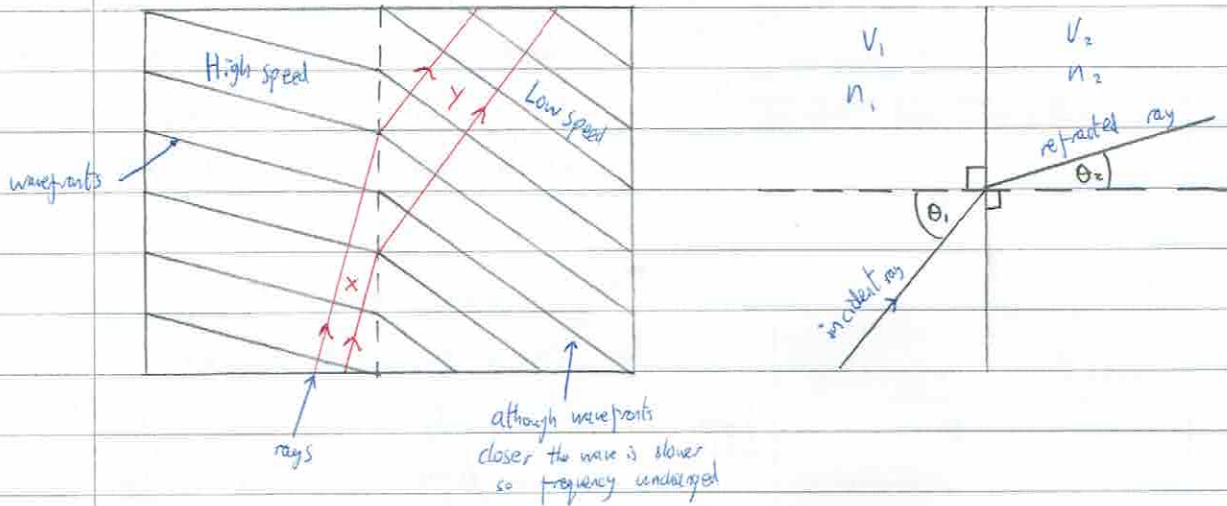 High speed
Low speed
X
Y
wavefronts
rays
athough wavefronts
closer the wave is slower
so frequency unchanged
V₁
n₁
V₂
n₂
refracted ray
θ₂
θ₁
incident ray